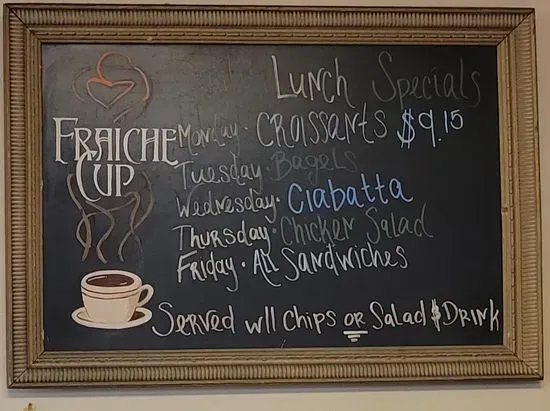 Lunch Specials
FRAICHE
CUP
Monday · CROISSANTS $9.15
Tuesday · Bagels
Wednesday · Ciabatta
Thursday · Chicken Salad
Friday · All Sandwiches
Served w/ Chips or Salad $ Drink